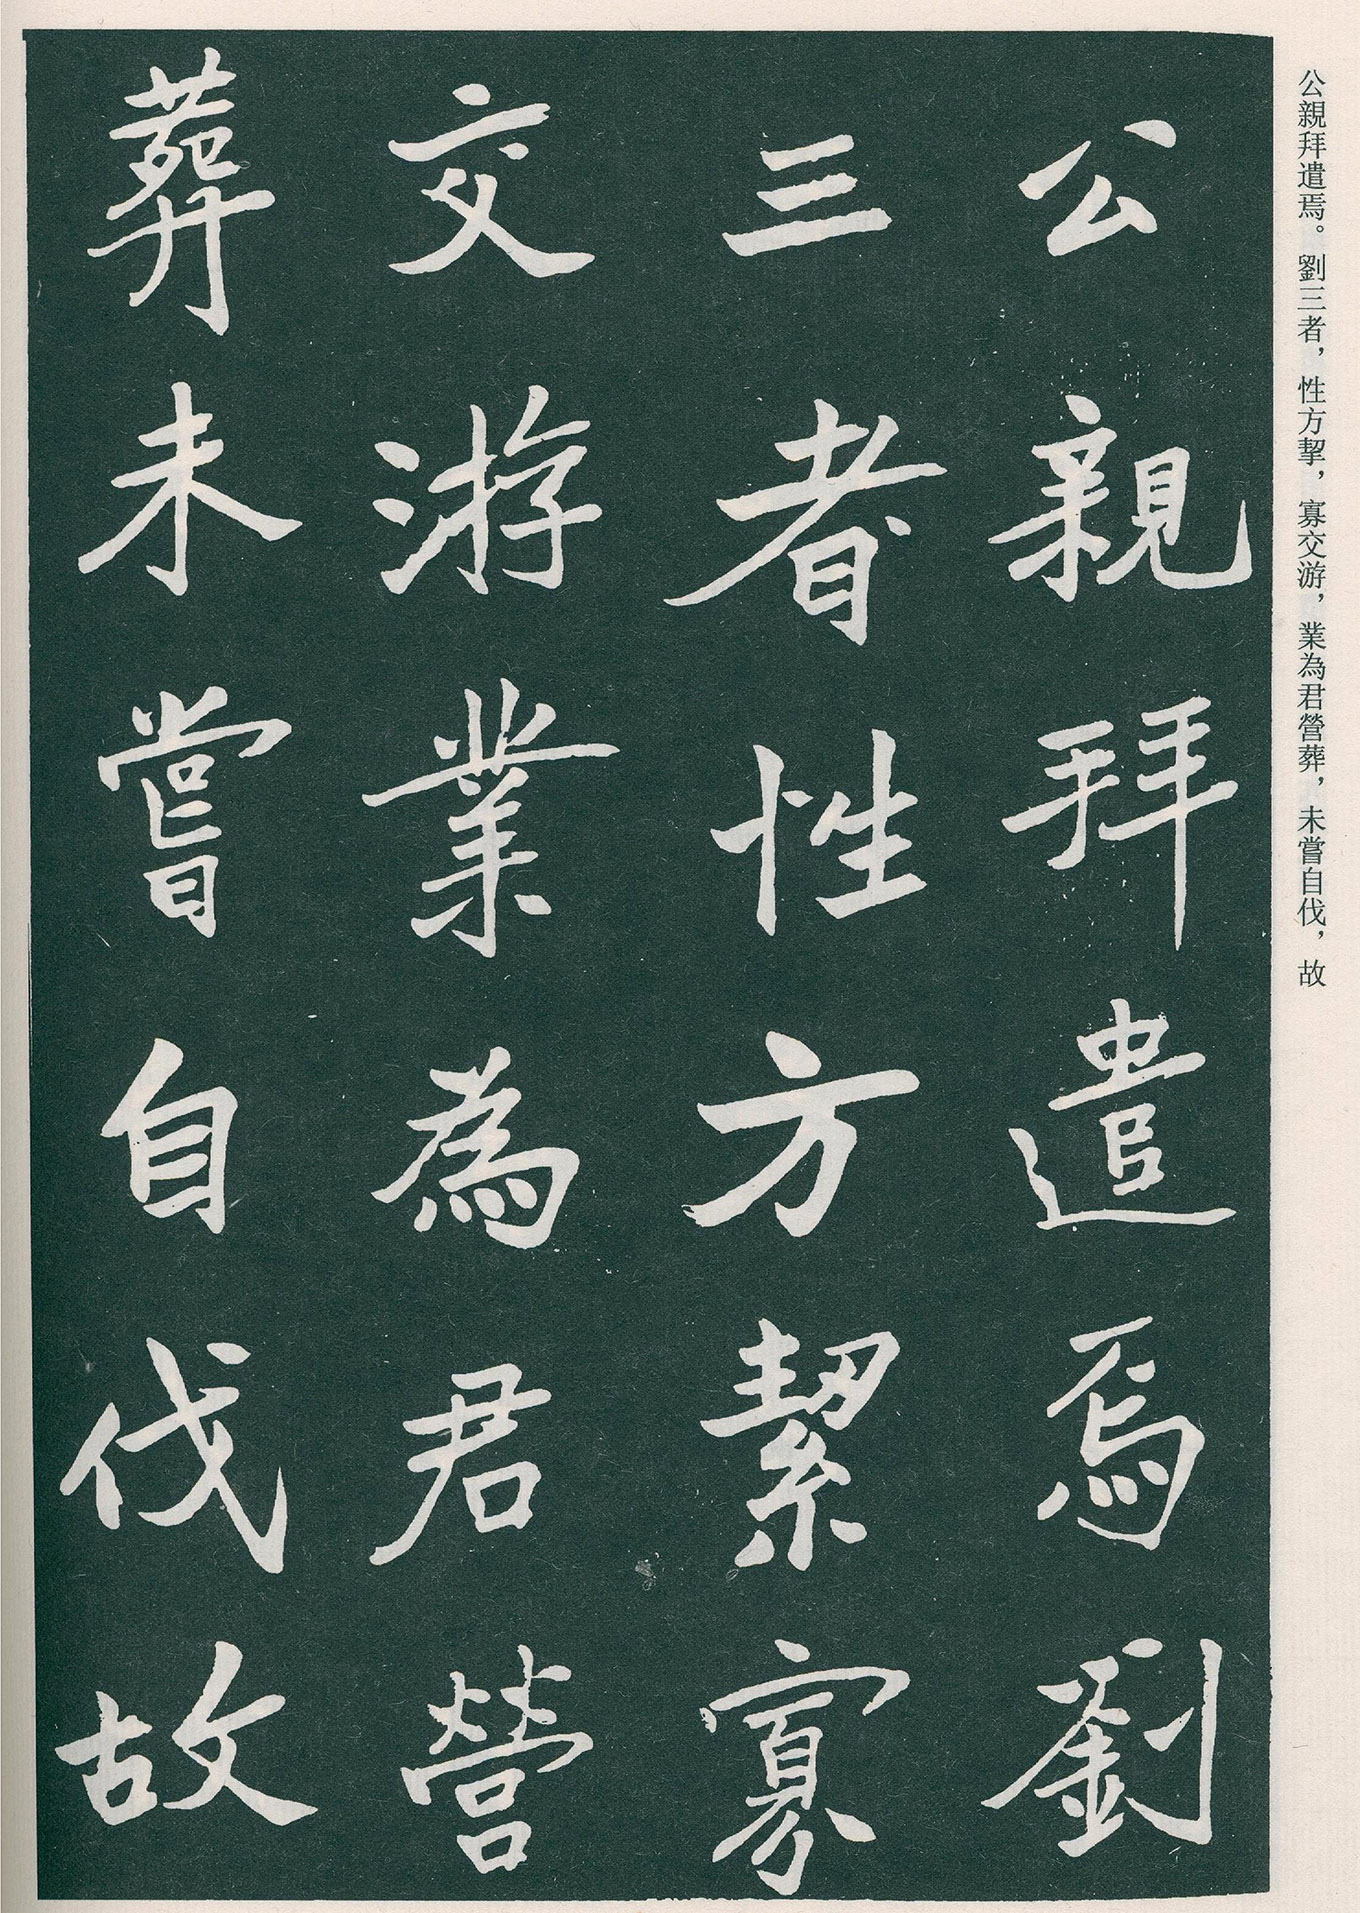 公親拜遣焉。劉三者，性方挈，寡交游，業為君營葬，未嘗自伐，故
公親拜遣焉劉
三者性方絜寡
交游業為君營
葬未嘗自伐故